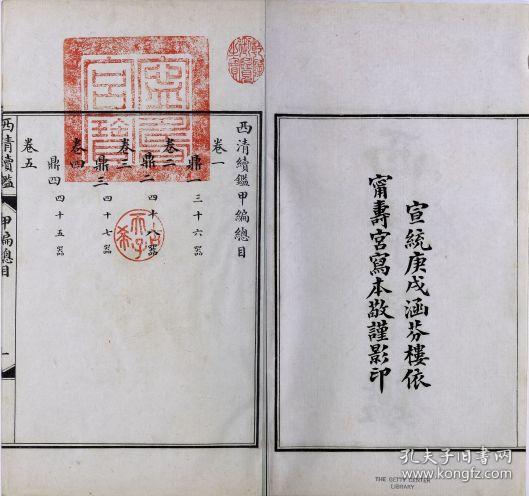 宣統庚戌涵芬樓依
甯壽宮寫本敬謹影印
THE GETTY CENTER
LIBRARY
西清續鑑甲編總目
卷一
鼎一 三十六器
卷二
鼎二 四十八器
卷三
鼎三 四十七器
卷四
鼎四 四十五器
卷五
西清續鑑 甲編總目 一
古希天子
孔夫子旧书网
www.kongfz.com